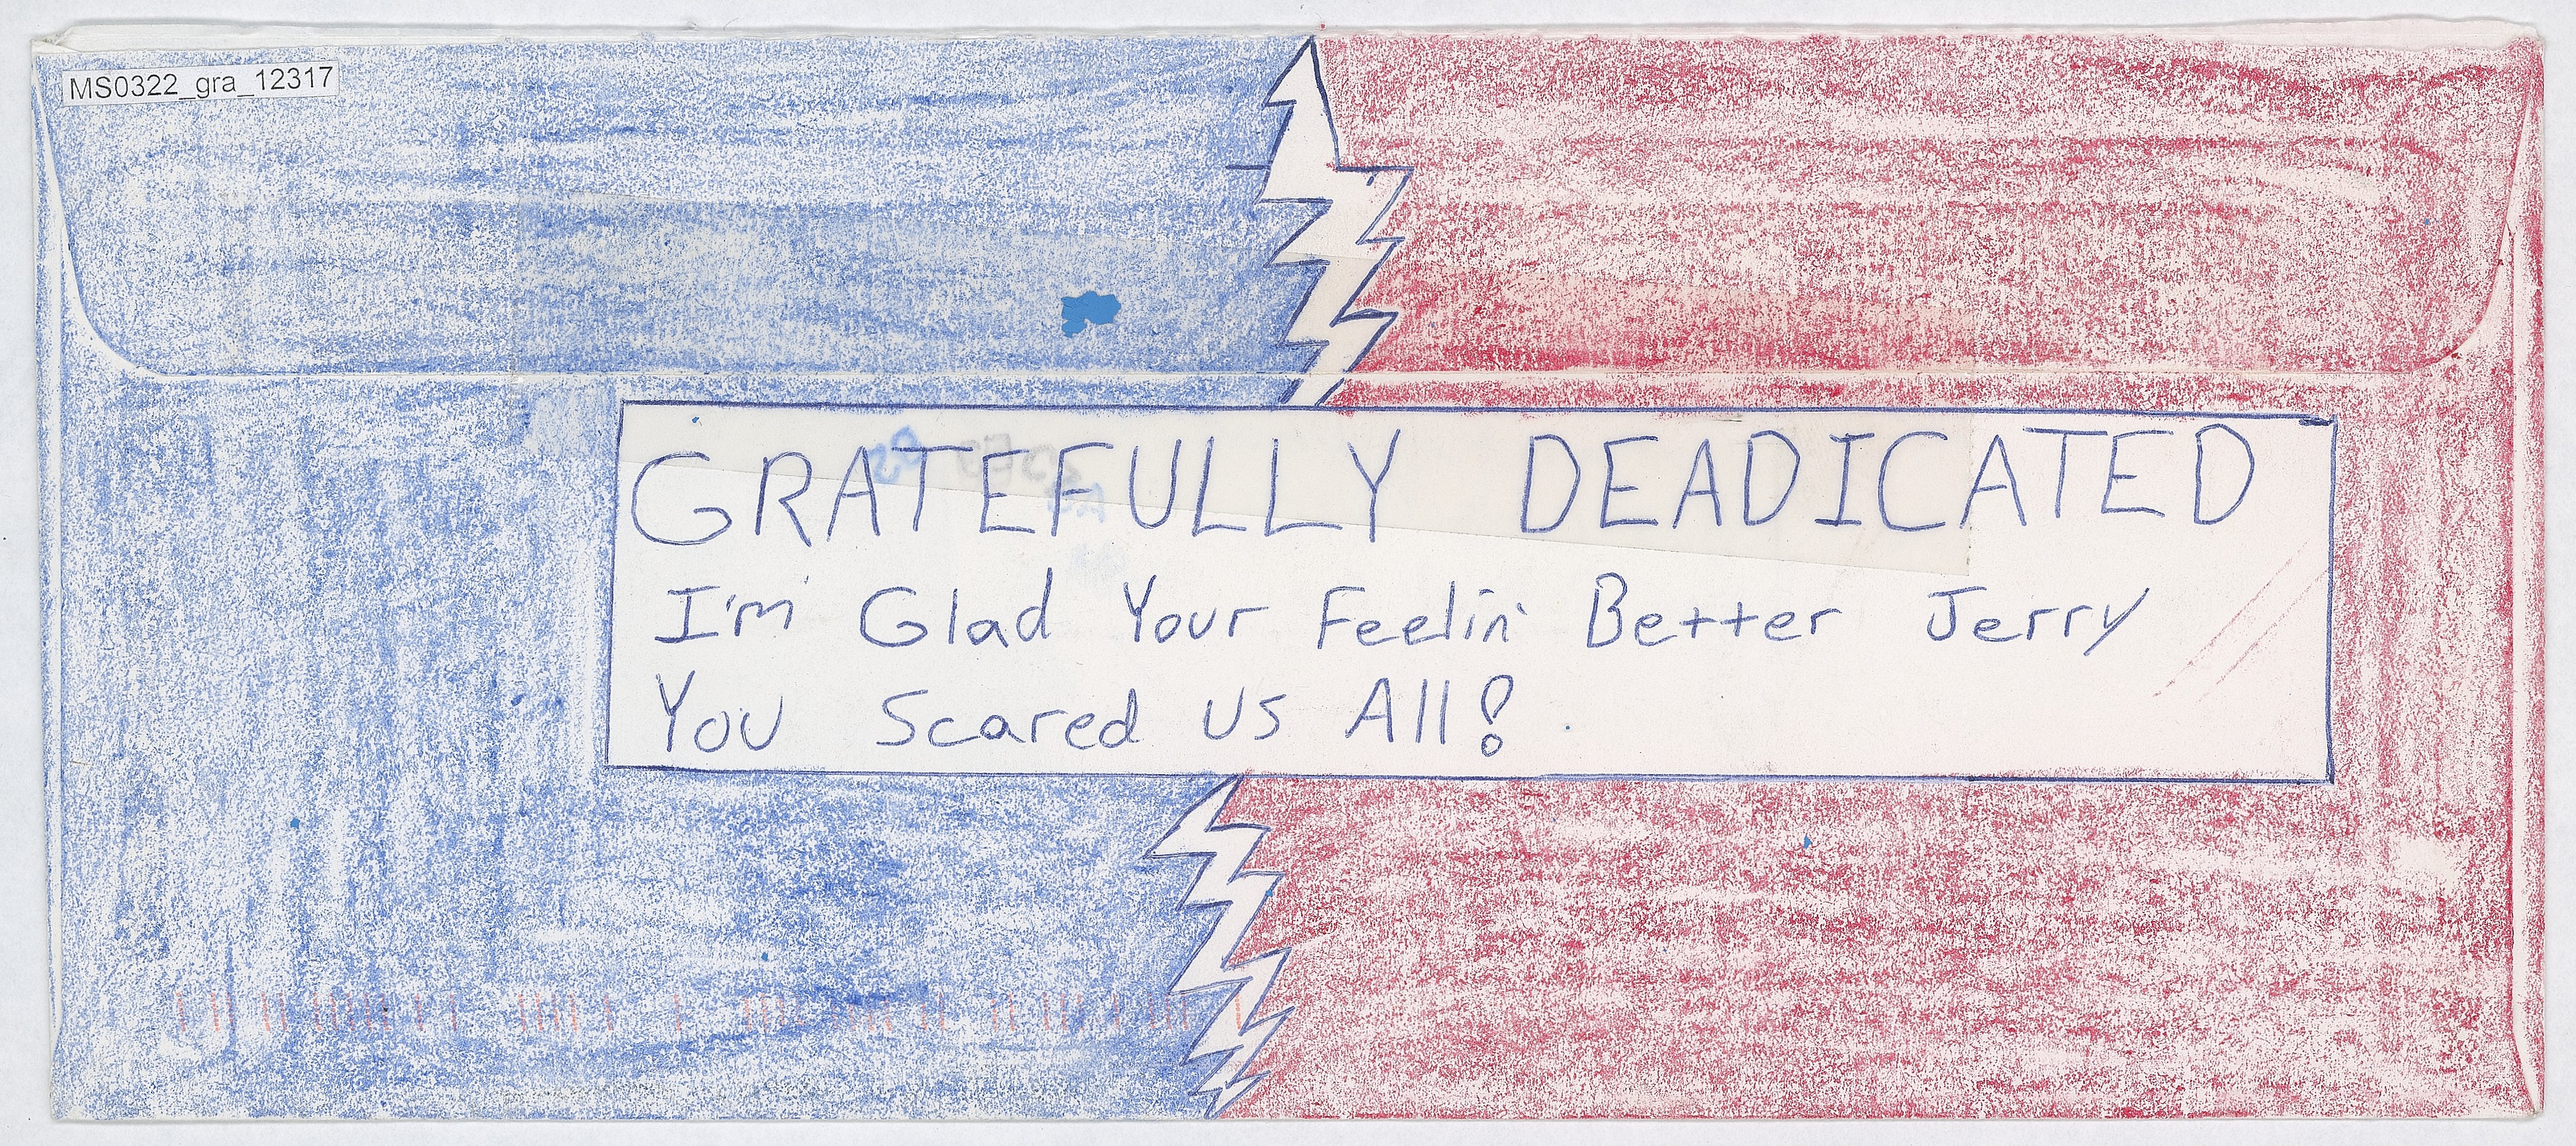 MS0322_gra_12317
GRATEFULLY DEADICATED
I'm Glad Your Feelin' Better Jerry
You Scared us All!